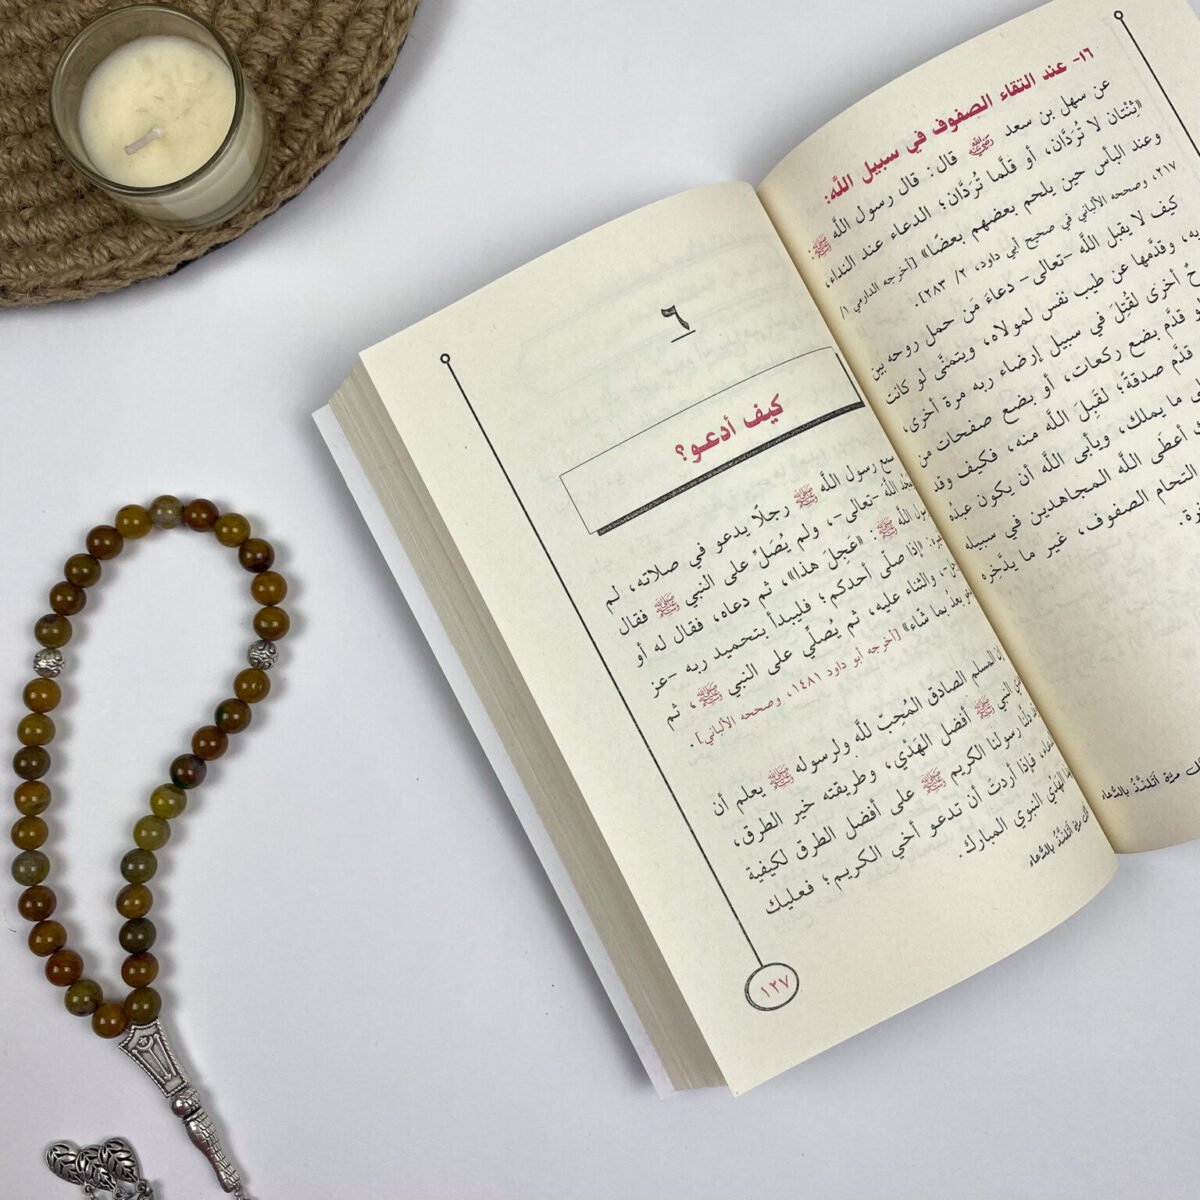 ١٦- عند التقاء الصفوف في سبيل اللَّه:
عن سهل بن سعد رضي الله عنه قال: قال رسول اللَّه ﷺ:
«ثِنْتان لا تُرَدَّان، أو قلَّما تُرَدَّان؛ الدعاء عند النداء،
وعند البأس حين يلحم بعضهم بعضًا» [أخرجه الدارمي ١/
٢١٧، وصححه الألباني في صحيح أبي داود، ٢/ ٢٨٣].
كيف لا يقبل اللَّه -تعالى- دعاءَ مَن حمل روحه بين
به، وقدَّمها عن طيب نفس لمولاه، ويتمنَّى لو كانت
حٌ أخرى لقُتِلَ في سبيل إرضاء ربه مرة أخرى،
قدَّم بضع ركعات، أو بضع صفحات من
قدَّم صدقةً؛ لقَبِلَ اللَّه منه، فكيف وقد
ما يملك، ويأبى اللَّه أن يكون عبدُه
أعطَى اللَّه المجاهدين في سبيله
التحام الصفوف، غير ما يدَّخِره
مرة أتلذَّذُ بالدُّعاء
٦
كيف أدعو؟
سمع رسول اللَّه ﷺ رجلًا يدعو في صلاته، لم
اللَّه -تعالى-، ولم يُصَلِّ على النبي ﷺ فقال
اللَّه ﷺ: «عَجِلَ هذا»، ثم دعاه، فقال له أو
«إذا صلَّى أحدكم؛ فليبدأ بتحميد ربه -عز
والثناء عليه، ثم يُصلِّي على النبي ﷺ، ثم
بعدُ بما شَاء» [أخرجه أبو داود ١٤٨١، وصححه الألباني].
المسلم الصادق المُحِبّ للَّه ولرسوله ﷺ يعلم أن
النبي ﷺ أفضل الهَدْي، وطريقته خير الطرق،
دلَّنا رسولنا الكريم ﷺ على أفضل الطرق لكيفية
فإذا أردتَ أن تدعو أخي الكريم؛ فعليك
الهَدْي النبوي المبارك.
مرة أتلذَّذُ بالدُّعاء
١٢٧